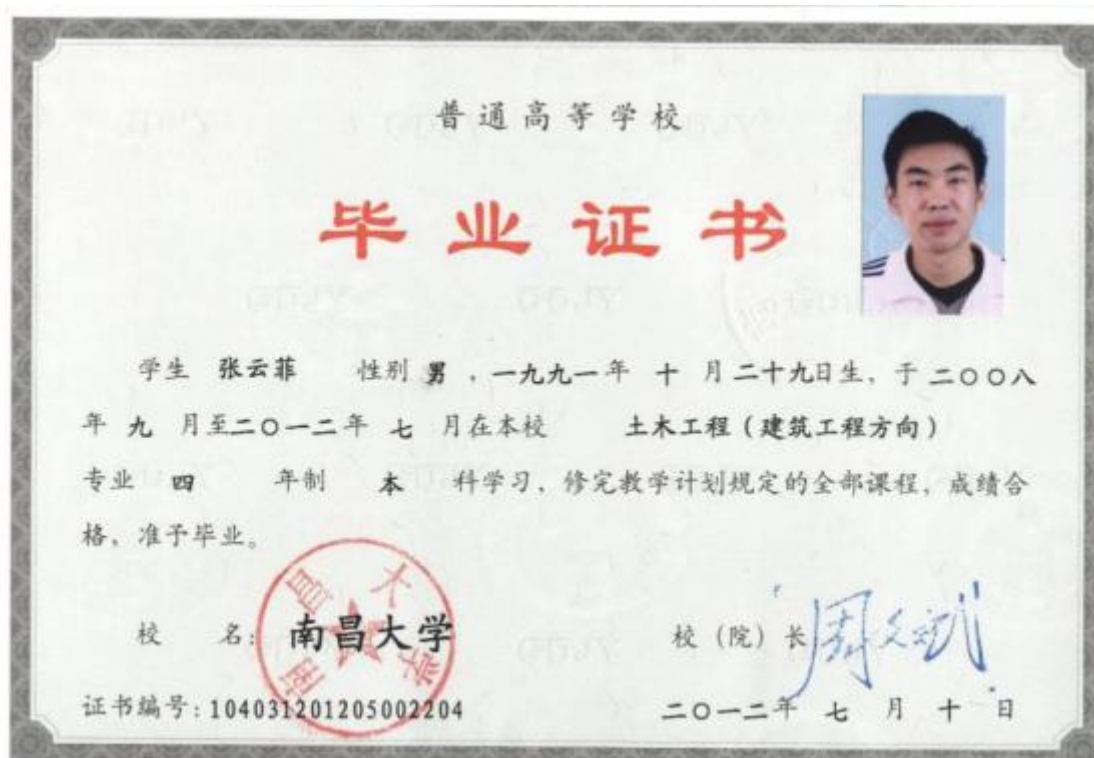 普通高等学校
毕业证书
学生 张云菲 性别 男，一九九一年 十 月二十九日生，于二〇〇八
年 九 月至二〇一二年 七 月在本校 土木工程（建筑工程方向）
专业 四 年制 本 科学习，修完教学计划规定的全部课程，成绩合
格，准予毕业。
南昌大学
校 名：南昌大学 校（院）长：周文斌
证书编号：104031201205002204 二〇一二年 七 月 十 日